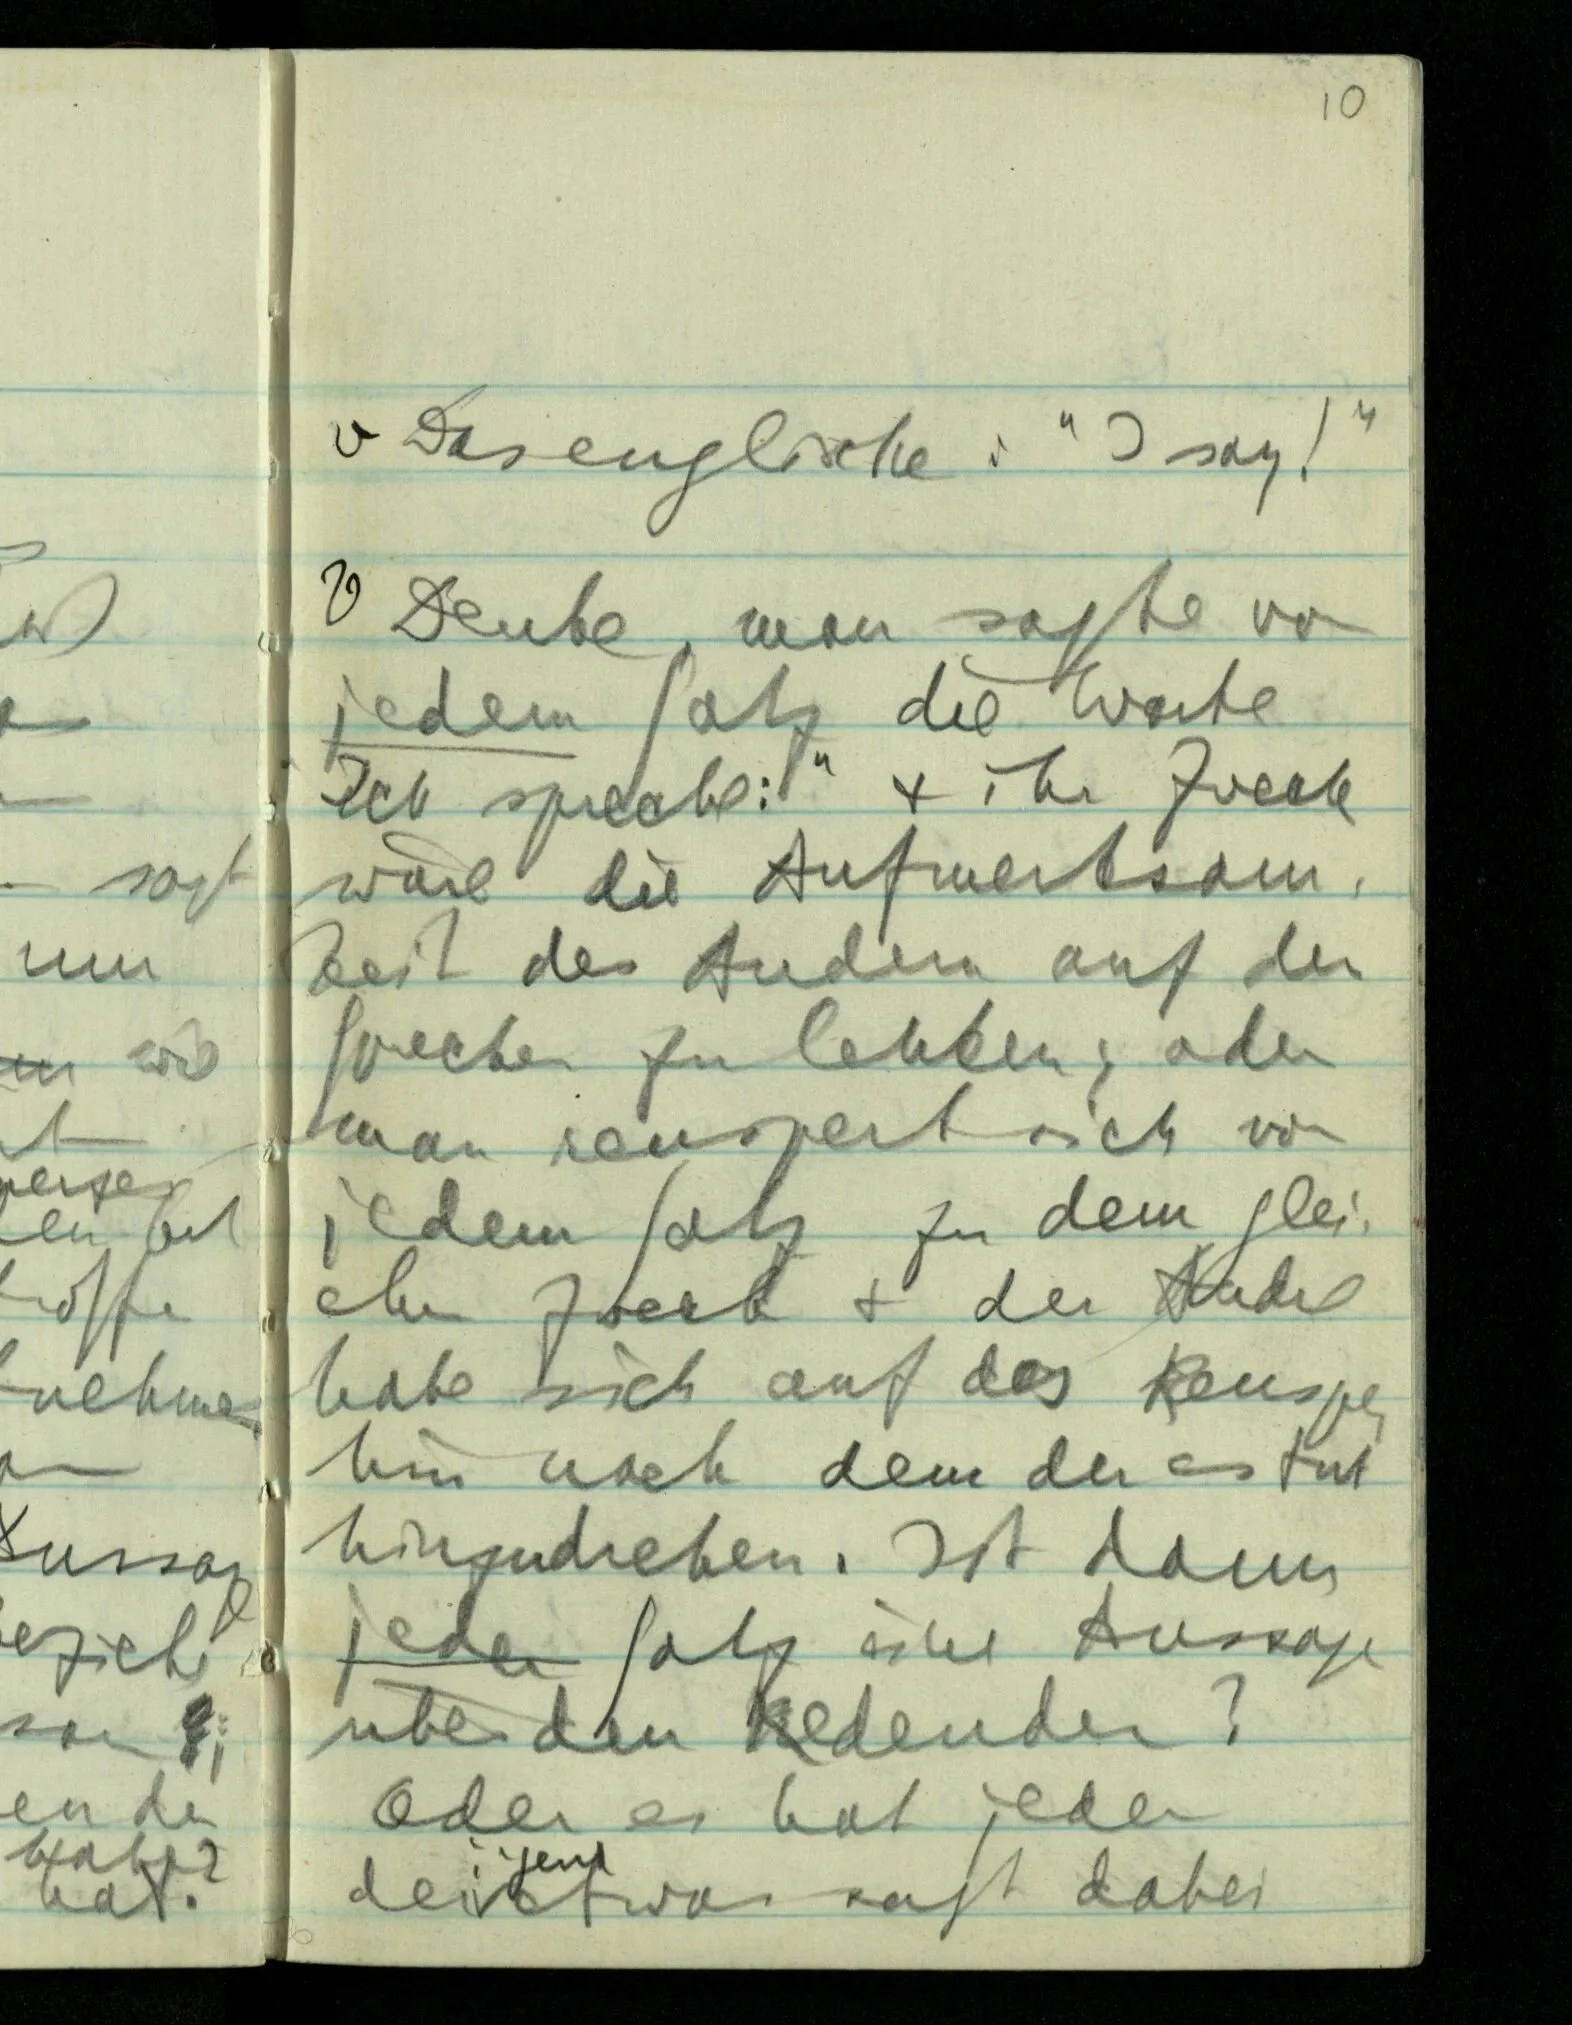 10
v Das englische: "I say!"
v Denke, man sagte vor
jedem Satz die Worte
Ich spreche:" & ihr Zweck
wäre die Aufmerksam-
keit des Andern auf den
Sprecher zu lenken; oder
man räuspert sich vor
jedem Satz zu dem glei-
chen Zweck & der Andre
habe sich auf das Räuspern
hin nach dem der es tut
hinzudrehen. Ist dann
jeder Satz eine Aussage
über den Redenden?
Oder es hat jeder
der irgend etwas sagt dabei
sagt
nun
wie
nehmen
Aussage
bezieht
hat.